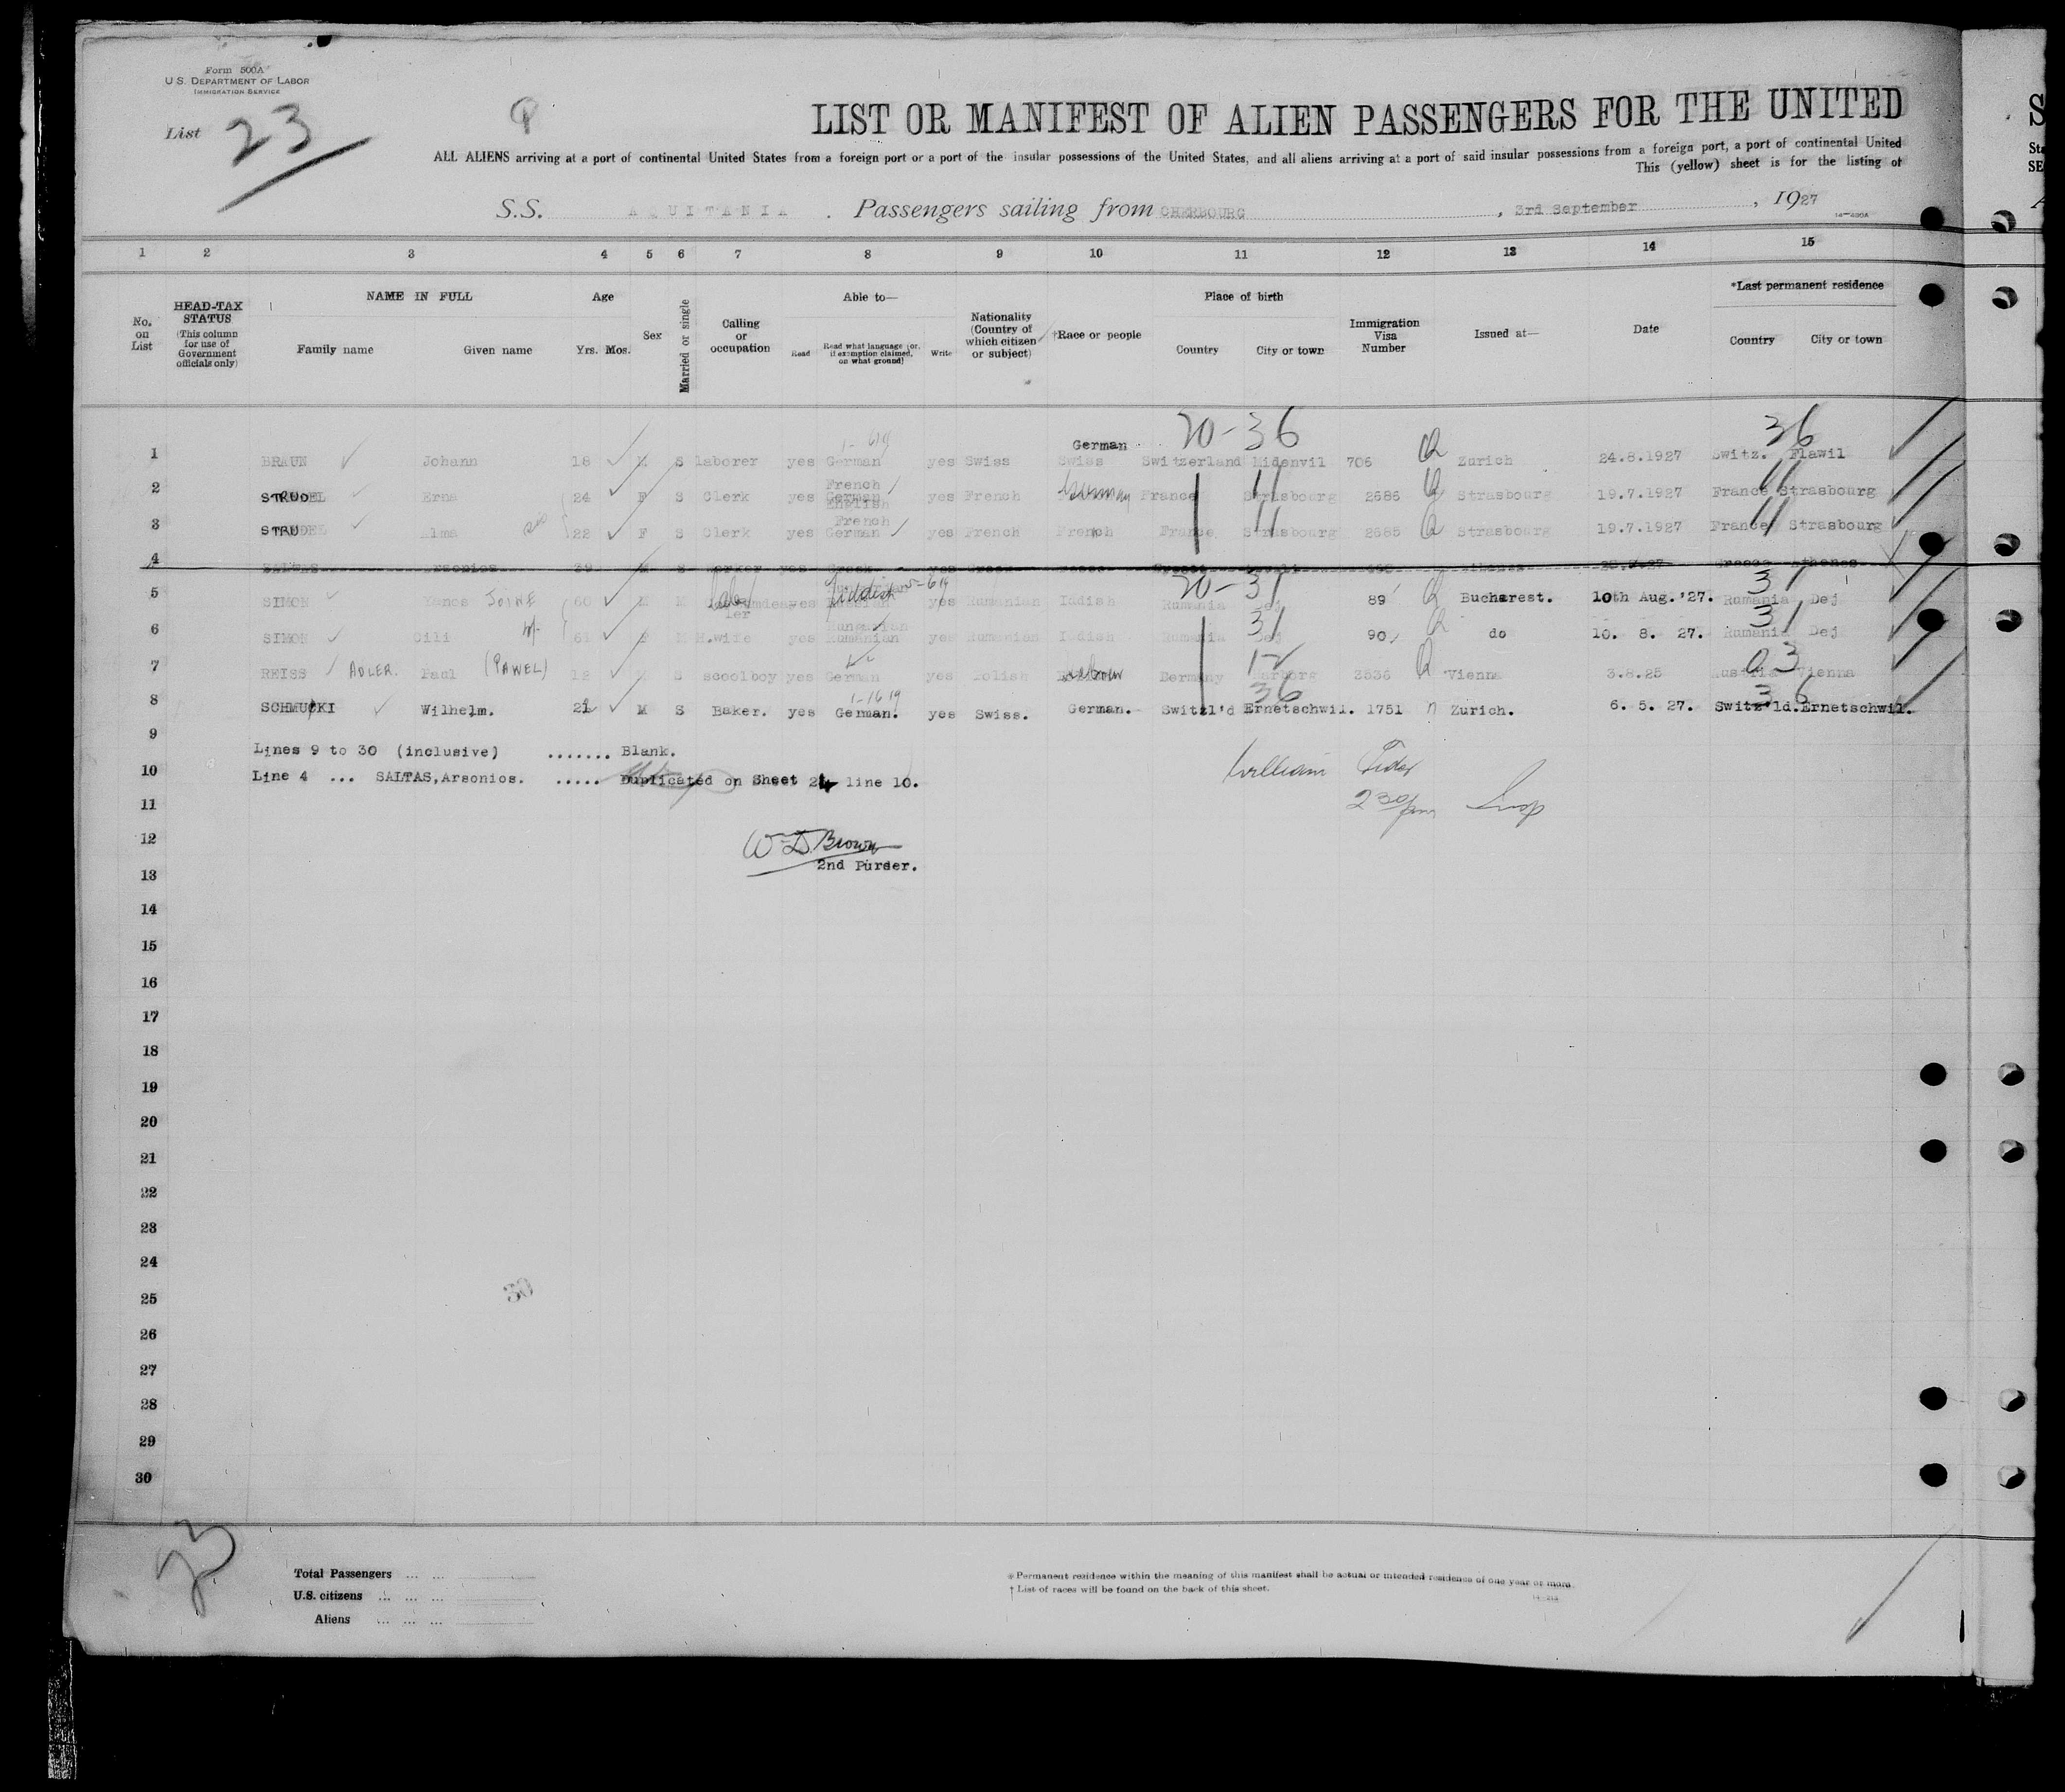 Form 500A
U.S. DEPARTMENT OF LABOR
IMMIGRATION SERVICE
List 23
LIST OR MANIFEST OF ALIEN PASSENGERS FOR THE UNITED
ALL ALIENS arriving at a port of continental United States from a foreign port or a port of the insular possessions of the United States, and all aliens arriving at a port of said insular possessions from a foreign port, a port of continental United
This (yellow) sheet is for the listing of
S.S. AQUITANIA. Passengers sailing from CHERBOURG, 3rd September, 1927
1 2 3 4 5 6 7 8 9 10 11 12 13 14 15
No. on List
HEAD-TAX STATUS (This column for use of Government officials only)
NAME IN FULL Family name Given name
Age Yrs. Mos.
Sex
Married or single
Calling or occupation
Able to— Read Read what language (or, if exemption claimed, on what ground) Write
Nationality (Country of which citizen or subject)
†Race or people
Place of birth Country City or town
Immigration Visa Number
Issued at—
Date
*Last permanent residence Country City or town
German 20-36 36
1 BRAUN Johann 18 M S laborer yes German yes Swiss Swiss Switzerland Midenvil 706 Zurich 24.8.1927 Switz. Flawil
2 STRUDEL Erna 24 F S Clerk yes French German English yes French German France 11 Strasbourg 2686 Strasbourg 19.7.1927 France 11 Strasbourg
3 STRUDEL Alma 22 F S Clerk yes French German yes French French France 11 Strasbourg 2685 Strasbourg 19.7.1927 France 11 Strasbourg
4 SALTAS Arsonios 39 M S Worker yes Greek yes Greek Greece Athenes
20-31 31
5 SIMON Yanos JOINE 60 M M yes Yiddish yes Rumanian Iddish Rumania Dej 89 Bucharest. 10th Aug.'27. Rumania Dej
6 SIMON Cili 61 F M H.wife yes Hungarian Rumanian yes Rumanian Iddish Rumania 31 Dej 90 do 10. 8. 27. Rumania 31 Dej
7 REISS ADLER. Paul (PAWEL) 12 M S scoolboy yes German yes Polish Hebrew Germany 12 3536 Vienna 3.8.25 Austria 03 Vienna
8 SCHMUCKI Wilhelm. 21 M S Baker. yes German. yes Swiss. German. Switzl'd 36 Ernetschwil. 1751 Zurich. 6. 5. 27. Switz'ld. 36 Ernetschwil.
9 Lines 9 to 30 (inclusive) ....... Blank.
10 Line 4 ... SALTAS,Arsonios. ..... Duplicated on Sheet 24 line 10.
William
2 30 pm Insp
11
12 W D Brown
13 2nd Purser.
14
15
16
17
18
19
20
21
22
23
24
25
26
27
28
29
30
23
Total Passengers ... ...
U.S. citizens ... ... ...
Aliens ... ... ...
* Permanent residence within the meaning of this manifest shall be actual or intended residence of one year or more.
† List of races will be found on the back of this sheet.